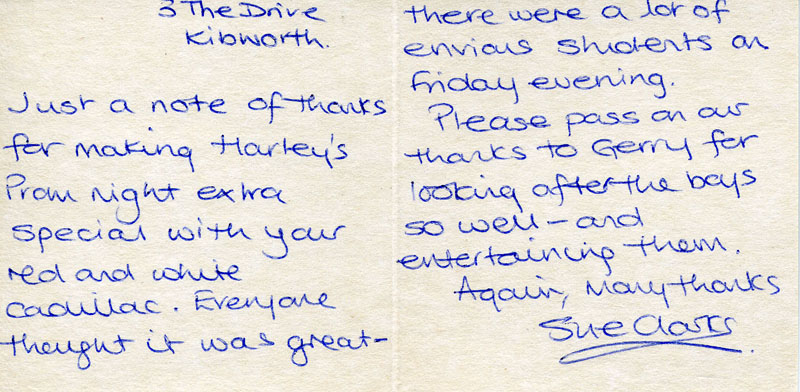 3 The Drive
Kibworth.
Just a note of thanks
for making Harley's
Prom night extra
special with your
red and white
cadillac. Everyone
thought it was great-
there were a lot of
envious students on
Friday evening.
Please pass on our
thanks to Gerry for
looking after the boys
so well - and
entertaining them.
Again, Many thanks
Sue